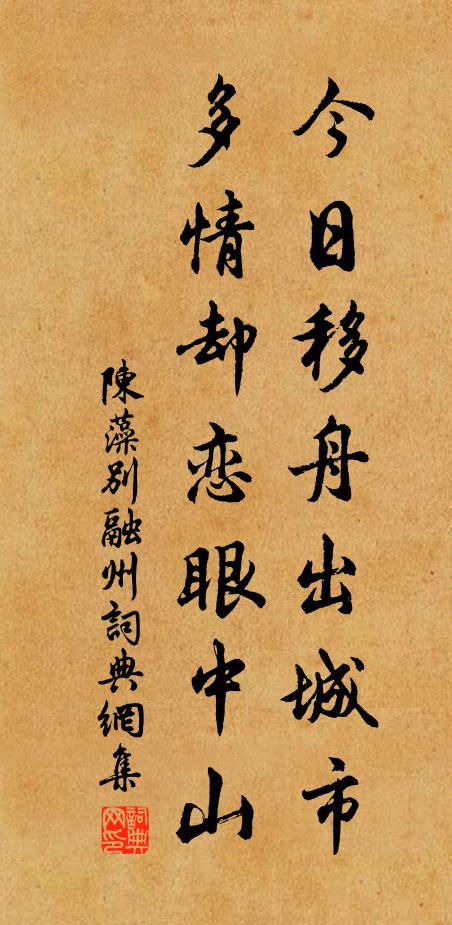 今日移舟出城市
多情却恋眼中山
陳藻別融州詞典網集
詞典网印